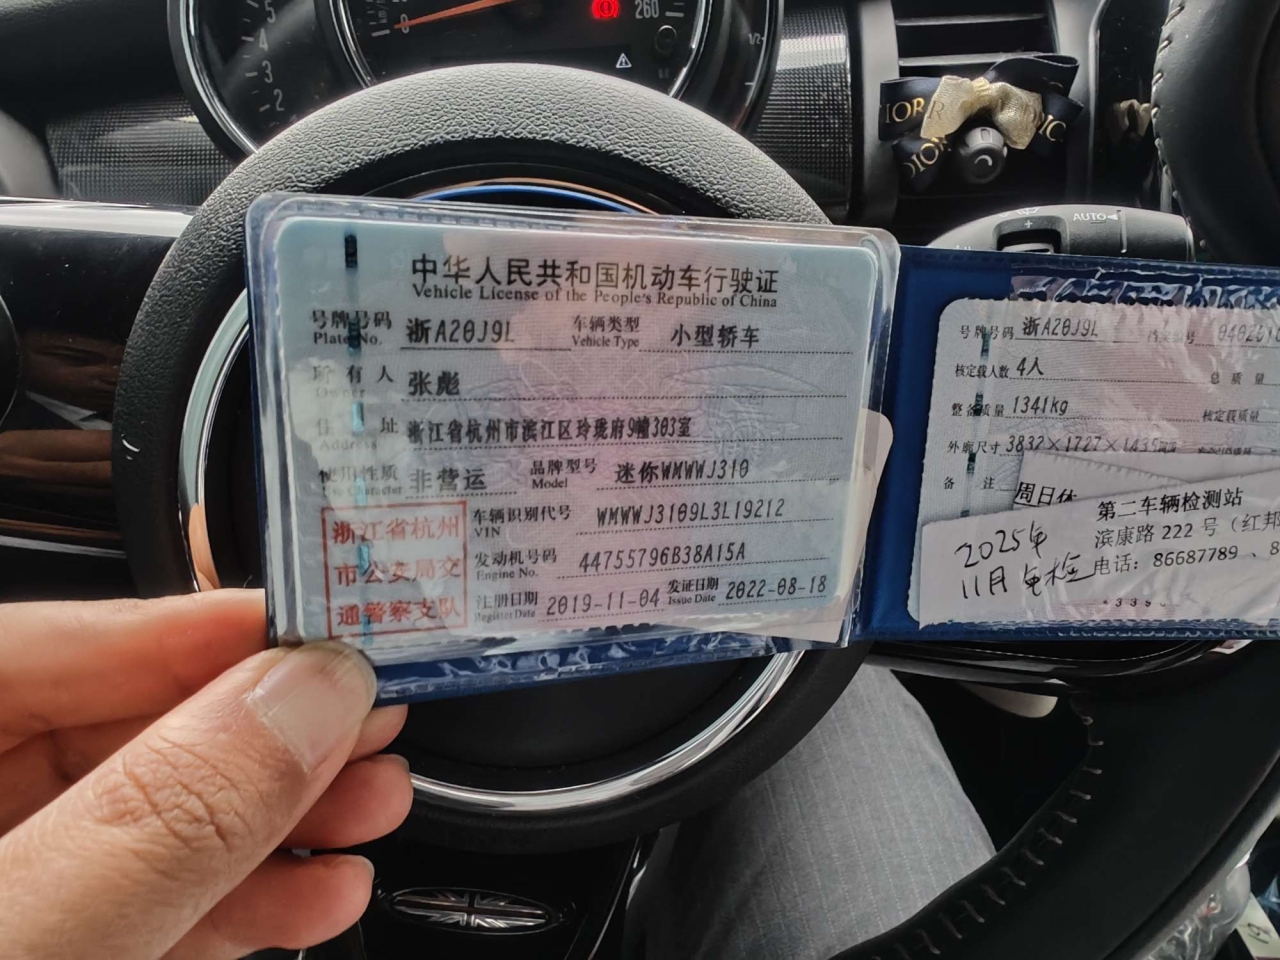 5
4
3
2
0
260
1/2
DIOR
DIOR
AUTO
中华人民共和国机动车行驶证
Vehicle License of the People's Republic of China
号牌号码 浙A20J9L 车辆类型 小型轿车
Plate No. Vehicle Type
所有人 张彪
Owner
住址 浙江省杭州市滨江区玲珑府9幢303室
Address
使用性质 非营运 品牌型号 迷你WMWWJ310
Use Character Model
浙江省杭州
市公安局交
通警察支队
车辆识别代号 WMWWJ3109L3L19212
VIN
发动机号码 44755796B38A15A
Engine No.
注册日期 2019-11-04 发证日期 2022-08-18
Register Date Issue Date
号牌号码 浙A20J9L 档案编号
核定载人数 4人 总质量
整备质量 1341kg 核定载质量
外廓尺寸 3832×1727×1435mm
备注
周日休
第二车辆检测站
滨康路 222 号（红邦
电话：86687789 、8
2025年
11月